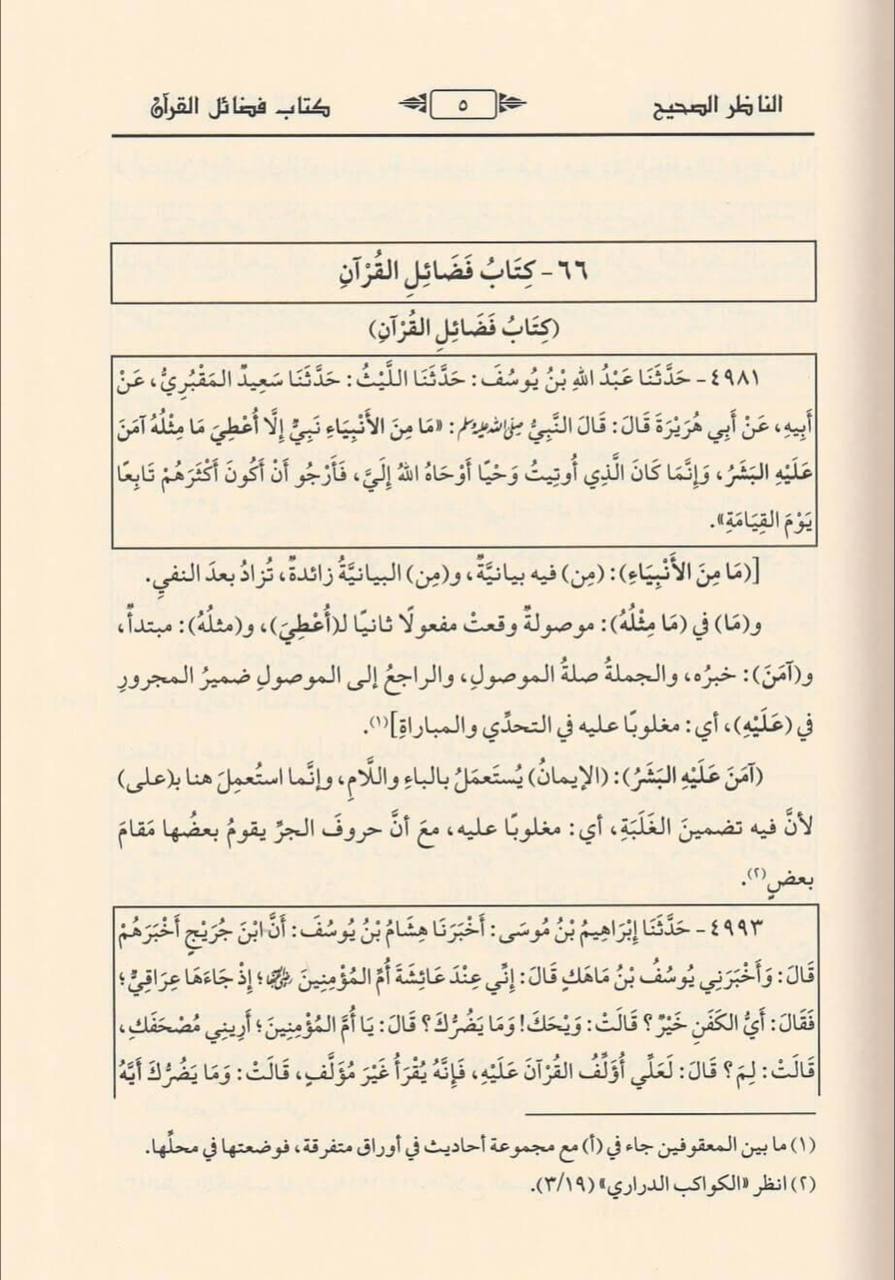 الناظر الصحيح ٥ كتاب فضائل القرآن
٦٦- كِتَابُ فَضَائِلِ القُرْآنِ
(كِتَابُ فَضَائِلِ القُرْآنِ)
٤٩٨١- حَدَّثَنَا عَبْدُ اللهِ بْنُ يُوسُفَ: حَدَّثَنَا اللَّيْثُ: حَدَّثَنَا سَعِيدٌ المَقْبُرِيُّ، عَنْ
أَبِيهِ، عَنْ أَبِي هُرَيْرَةَ قَالَ: قَالَ النَّبِيُّ صلى الله عليه وسلم: «مَا مِنَ الأَنْبِيَاءِ نَبِيٌّ إِلَّا أُعْطِيَ مَا مِثْلُهُ آمَنَ
عَلَيْهِ البَشَرُ، وَإِنَّمَا كَانَ الَّذِي أُوتِيتُ وَحْيًا أَوْحَاهُ اللهُ إِلَيَّ، فَأَرْجُو أَنْ أَكُونَ أَكْثَرَهُمْ تَابِعًا
يَوْمَ القِيَامَةِ».
[(مَا مِنَ الأَنْبِيَاءِ): (مِن) فيه بيانيَّةٌ، و(مِن) البيانيَّةُ زائدةٌ، تُزادُ بعدَ النفيِ.
و(مَا) في (مَا مِثْلُهُ): موصولةٌ وقعتْ مفعولًا ثانيًا لـ(أُعْطِيَ)، و(مثلُهُ): مبتدأٌ،
و(آمَنَ): خبرُه، والجملةُ صلةُ الموصولِ، والراجعُ إلى الموصولِ ضميرُ المجرورِ
في (عَلَيْهِ)، أي: مغلوبًا عليه في التحدِّي والمباراةِ](١).
(آمَنَ عَلَيْهِ البَشَرُ): (الإيمانُ) يُستَعمَلُ بالباءِ واللَّامِ، وإنَّما استُعمِلَ هنا بـ(على)
لأنَّ فيه تضمينَ الغَلَبَةِ، أي: مغلوبًا عليه، معَ أنَّ حروفَ الجرِّ يقومُ بعضُها مَقامَ
بعضٍ(٢).
٤٩٩٣- حَدَّثَنَا إِبْرَاهِيمُ بْنُ مُوسَى: أَخْبَرَنَا هِشَامُ بْنُ يُوسُفَ: أَنَّ ابْنَ جُرَيْجٍ أَخْبَرَهُمْ
قَالَ: وَأَخْبَرَنِي يُوسُفُ بْنُ مَاهَكٍ قَالَ: إِنِّي عِنْدَ عَائِشَةَ أُمِّ المُؤْمِنِينَ رضي الله عنها؛ إِذْ جَاءَهَا عِرَاقِيٌّ؛
فَقَالَ: أَيُّ الكَفَنِ خَيْرٌ؟ قَالَتْ: وَيْحَكَ! وَمَا يَضُرُّكَ؟ قَالَ: يَا أُمَّ المُؤْمِنِينَ؛ أَرِينِي مُصْحَفَكِ،
قَالَتْ: لِمَ؟ قَالَ: لَعَلِّي أُؤَلِّفُ القُرْآنَ عَلَيْهِ، فَإِنَّهُ يُقْرَأُ غَيْرَ مُؤَلَّفٍ، قَالَتْ: وَمَا يَضُرُّكَ أَيَّهُ
(١) ما بين المعقوفين جاء في (أ) مع مجموعة أحاديث في أوراق متفرقة، فوضعتها في محلِّها.
(٢) انظر «الكواكب الدراري» (٣/١٩).